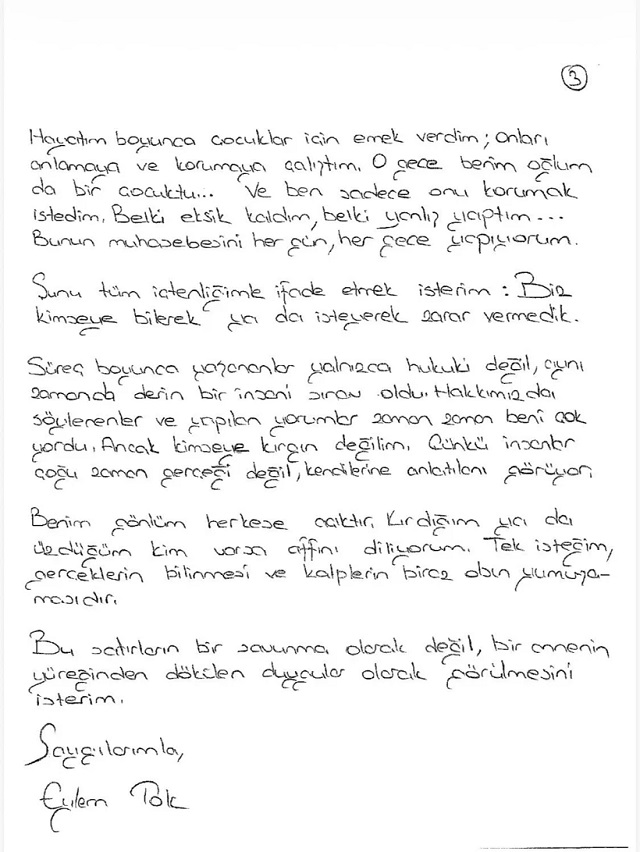 3
Hayatım boyunca çocuklar için emek verdim; onları
anlamaya ve korumaya çalıştım. O gece benim oğlum
da bir çocuktu... Ve ben sadece onu korumak
istedim. Belki eksik kaldım, belki yanlış yaptım...
Bunun muhasebesini her gün, her gece yapıyorum.
Şunu tüm içtenliğimle ifade etmek isterim: Biz
kimseye bilerek ya da isteyerek zarar vermedik.
Süreç boyunca yaşananlar yalnızca hukuki değil, aynı
zamanda derin bir insani sınav oldu. Hakkımızda
söylenenler ve yapılan yorumlar zaman zaman beni çok
yordu. Ancak kimseye kırgın değilim. Çünkü insanlar
çoğu zaman gerçeği değil, kendilerine anlatılanı görüyor.
Benim gönlüm herkese açıktır. Kırdığım ya da
üzdüğüm kim varsa affını diliyorum. Tek isteğim,
gerçeklerin bilinmesi ve kalplerin biraz olsun yumuşa-
masıdır.
Bu satırların bir savunma olarak değil, bir annenin
yüreğinden dökülen duygular olarak görülmesini
isterim.
Saygılarımla,
Eylem Tok